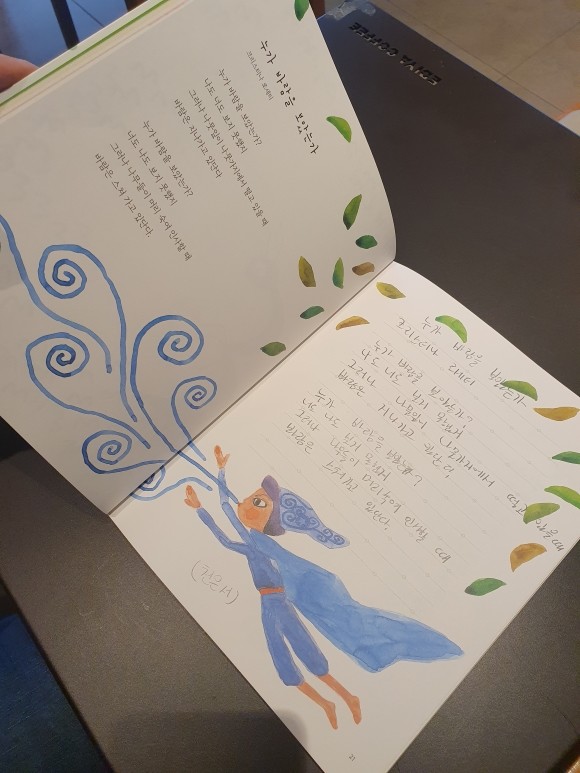 누가 바람을 보았는가
크리스티나 로세티
누가 바람을 보았는가?
나도 너도 보지 못했지
그러나 나뭇잎이 나뭇가지에서 떨고 있을 때
바람은 지나가고 있단다
누가 바람을 보았는가?
너도 나도 보지 못했지
그러나 나무들이 머리 숙여 인사할 때
바람은 스쳐 가고 있단다.
누가 바람을 보았는가
크리스티나 로세티
누가 바람을 보았는가?
나도 너도 보지 못했지
그러나 나뭇잎이 나뭇가지에서 떨고 있을 때
바람은 지나가고 있단다.
누가 바람을 보았는가?
너도 나도 보지 못했지
그러나 나무들이 머리 숙여 인사할 때
바람은 스쳐가고 있단다.
21
EDIYA COFFEE